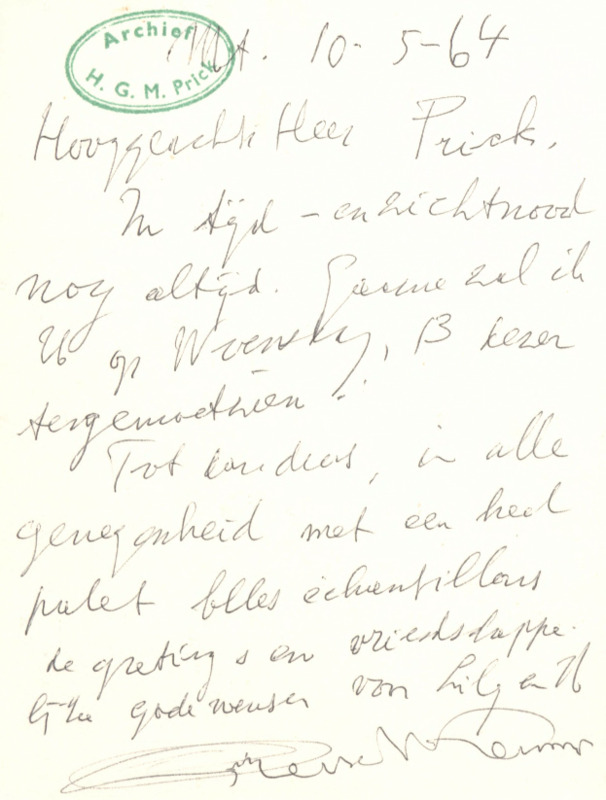 Archief
H. G. M. Prick
10-5-64
Hooggeachte Heer Prick.
In tijd - en zichtnood
nog altijd. Gaarne zal ik
U op Woensdag, 13 dezer
tegemoetzien!
Tot dan dus, in alle
genegenheid met een heel
palet échantillons
de greting s en vriendschappe-
lijke goede wensen van